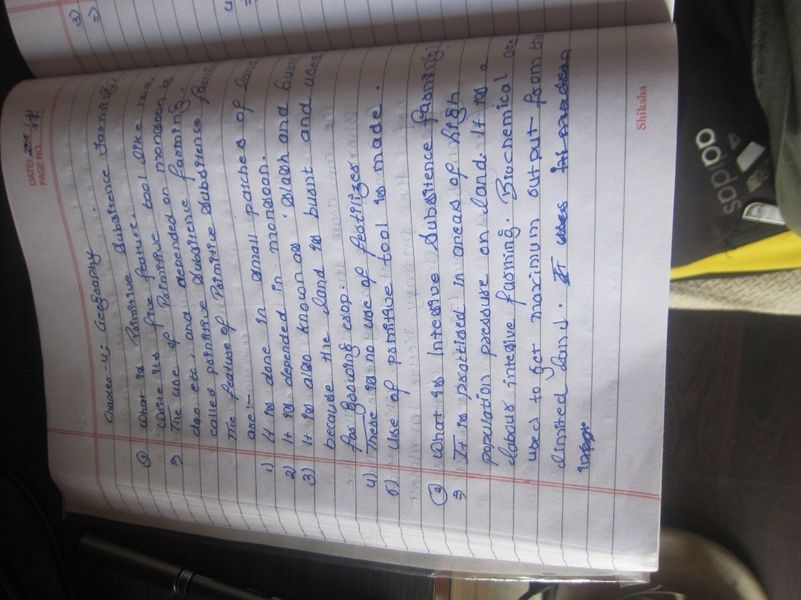 DATE:
PAGE NO.:
Chapter-4: Geography
① What is Primitive Subsistence Farming?
Write its five feature.
⇒ The use of Primitive tool like hoe,
dao etc, and depended on monsoon is
called primitive subsistence farming.
The feature of Primitive subsistence farmi
are:-
1) It is done in small patches of land
2) It is depended in monsoon.
3) It is also known as 'slash and burn'
because the land is burnt and used
for growing crop.
4) There is no use of fertilizers
5) Use of primitive tool is made.
② What is Intensive Subsistence farming?
⇒ It is practised in areas of high
population pressure on land. It is a
labour intesive farming. Biochemical are
used to get maximum output from the
limited land.
Shiksha
adidas